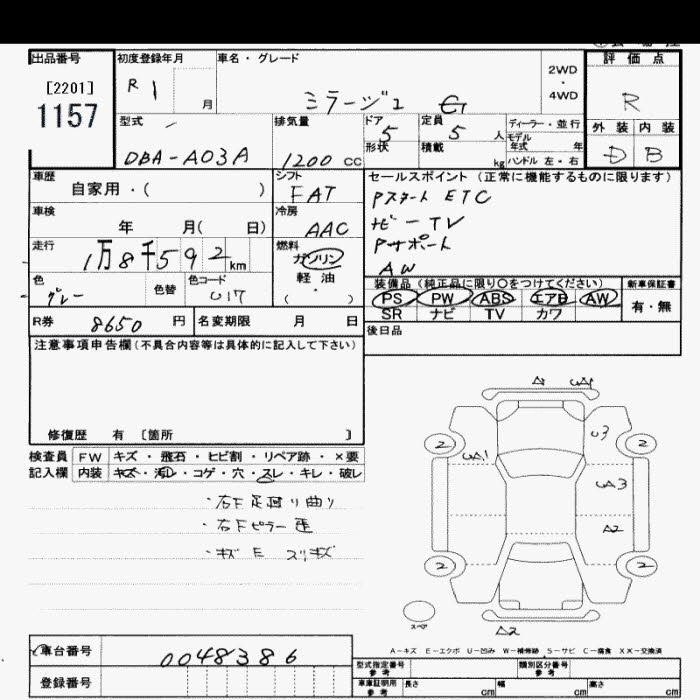 出品番号
[2201]
1157
初度登録年月
R 1 月
車名・グレード
ミラージュ G
2WD
・
4WD
評価点
R
外装 内装
D B
型式
DBA-A03A
排気量
1200 cc
ドア
5
形状
定員
5 人
積載
kg
ディーラー・並行
モデル
年式 年
ハンドル 左・右
車歴
自家用・( )
シフト
FAT
車検
年 月( 日)
冷房
AAC
走行
1万8千592km
燃料
ガソリン
軽・油
( ・ )
色
グレー
色替
色コード
U17
R券
8650 円
名変期限 月 日
セールスポイント (正常に機能するものに限ります)
Pスタート ETC
ナビーTV
Pサポート
AW
装備品 (純正品に限り○をつけてください)
PS PW ABS エアB AW
SR ナビ TV カワ
新車保証書
有・無
後日品
注意事項申告欄 (不具合内容等は具体的に記入して下さい)
修復歴 有 [箇所 ]
検査員 FW キズ・飛石・ヒビ割・リペア跡・×要
記入欄 内装 キズ・汚レ・コゲ・穴・スレ・キレ・破レ
・右F足廻り曲り
・右Fピラー歪
・キズ E スリキズ
A
2 U3 2
UA1
UA3
A2
2 2
スペア
A2
A-キズ E-エクボ U-凹み W-補修跡 S-サビ C-腐食 XX-交換済
車台番号
0048386
登録番号
型式指定番号
参考
類別区分番号
参考
車庫証明用
参考
長さ cm 幅 cm 高さ cm